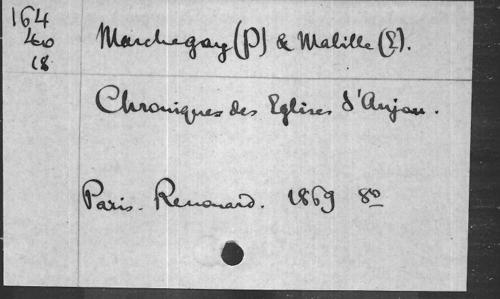 164
40
18
Marchegay (P) & Mabille (E).
Chroniques des Eglises d'Anjou.
Paris. Renouard. 1869 8º